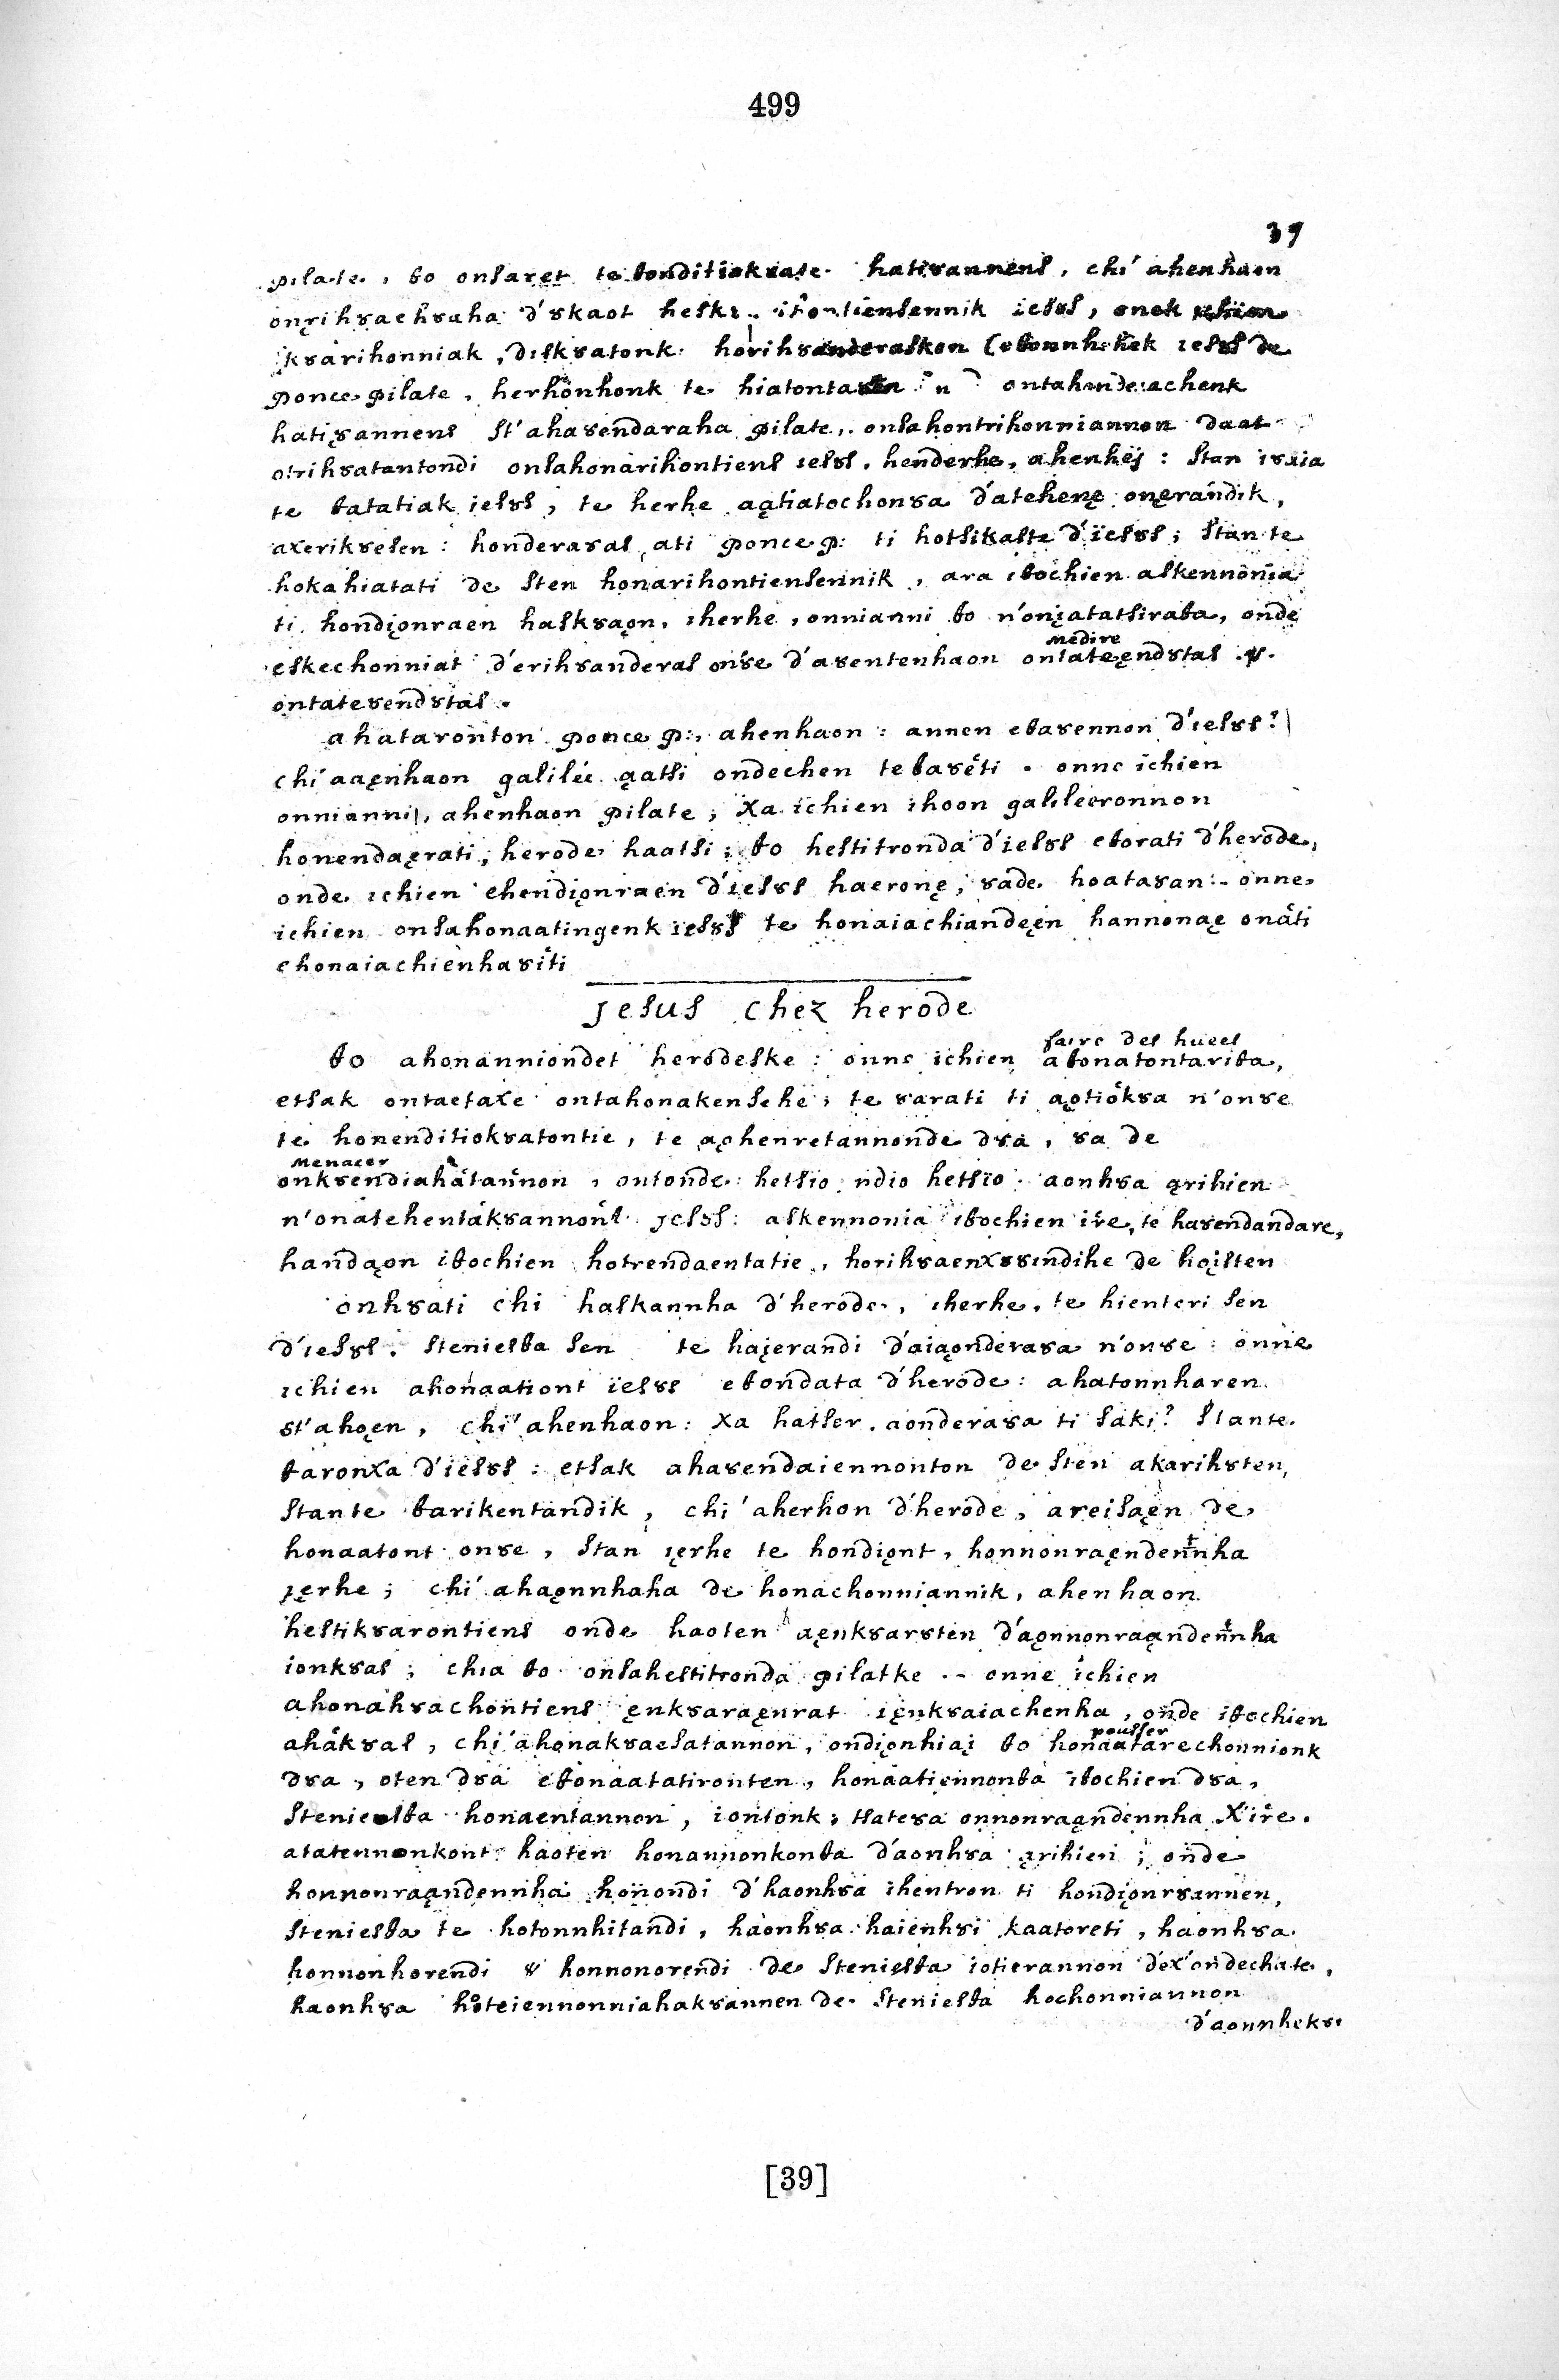 499
39
pilate, θo onsaręt te θonditiokȣate. hatiȣannens, chi' ahenhaon
onȩrihȣachȣaha d'ȣkaot heskȣ. ihontiensennik iesȣs, onek ichien
ikȣarihonniak, diskȣatonk: horihȣanderaskon (eθonnhȣhek iesȣs de
ponce pilate, herhonhonk te hiatonta ontahonderachenk
hatiȣannens st'ahaȣendaraha pilate, onsahontrihonniannon daat
otrihȣatantondi onsahonarihontiens iesȣs, henderhe, ahenhej: stan iȣaia
te θatatiak iesȣs, te herhe aątiatochonȣa d'atehenę onęrandik,
axerikȣesen: honderaȣas ati ponce p: ti hotsikaste d'iesȣs; stan te
hokahiatati de sten honarihontiensennik, ara iθochien askennonia
ti hondiǫnraen haskȣaǫn, iherhe, onnianni θo n'onįatatsiraθa, onde
medire
eskechonniat d'erihȣanderas onȣe d'aȣentenhaon ontateęndȣtas .v.
ontateȣendȣtas.
ahataronton ponce p:, ahenhaon: annen eθaȣennon d'iesȣs?
chi' aaęnhaon galilée ąatsi ondechen teθaȣeti. onne ichien
onnianni, ahenhaon pilate; xa ichien ihoon galileeronnon
honendaęrati, herode haatsi; θo hestitronda d'iesȣs eθorati d'herode,
onde ichien ehendiǫnraen d'iesȣs haeronę, ȣade hoataȣan:- onne
ichien onsahonaatingenk iesȣs te honaiachiandeęn hannonaę onati
ehonaiachienhaȣiti
Jesus chez herode
faire des huées
θo ahonanniondet herodeske: onne ichien aθonatontariθa,
etsak ontaetaxe ontahonakensehe; te ȣarati ti aǫtiokȣa n'onȣe
te honenditiokȣatontie, te aǫhenretannonde dȣa, ȣa de
menacer
onkȣendiahatannon, ontonde: hetsio ndio hetsio aonhȣa ąrihien
n'onatehentakȣannont Jesȣs: askennonia iθochien ire, te haȣendandare,
handąon iθochien hotrendaentatie, horihȣaenxȣȣindihe de hoįsten
onhȣati chi haskannha d'herode, iherhe, te hienteri sen
d'iesȣs. steniesθa sen te haįerandi d'aiaǫnderaȣa n'onȣe: onne
ichien ahonaationt iesȣs eθondata d'herode: ahatonnharen
st'ahoęn, chi' ahenhaon: xa hatser. aonderaȣa ti saki? stante
θaronxa d'iesȣs: etsak ahaȣendaiennonton de sten akarihȣten,
stante θarikentandik, chi' aherhon d'herode, areisaęn de
honaatont onȣe, stan ięrhe te hondiǫnt, honnonraęndennha
ięrhe; chi' ahaǫnnhaha de honachonniannik, ahenhaon
hestikȣarontiens onde haoten aęnkȣarȣten d'aǫnnonraąndennha
ionkȣas; chia θo onsahestitronda pilatke .- onne ichien
ahonahȣachontiens ęnkȣaraęnrat ięnkȣaiachenha, onde iθochien
pousser
ahakȣas, chi' ahonakȣaesatannon, ondiǫnhiaį θo honaatarechonnionk
dȣa, oten dȣa eθonaatatironten, honaatiennonθa iθochien dȣa,
steniesθa honaentannon, iontonk; tsateȣa onnonraąndennha x'ire.
atatennonkont haoten honannonkonθa d'aonhȣa ąrihien; onde
honnonraąndennha honondi d'haonhȣa ihentron ti hondiǫnrȣannen,
steniesθa te hotonnhitandi, haonhȣa haienhȣi kaatoreti, haonhȣa
honnonhorendi v honnonorendi de steniesθa iotierannon dex'ondechate,
haonhȣa hoteiennonniahakȣannen de steniesθa hochonniannon
d'aonnhekȣi
[39]